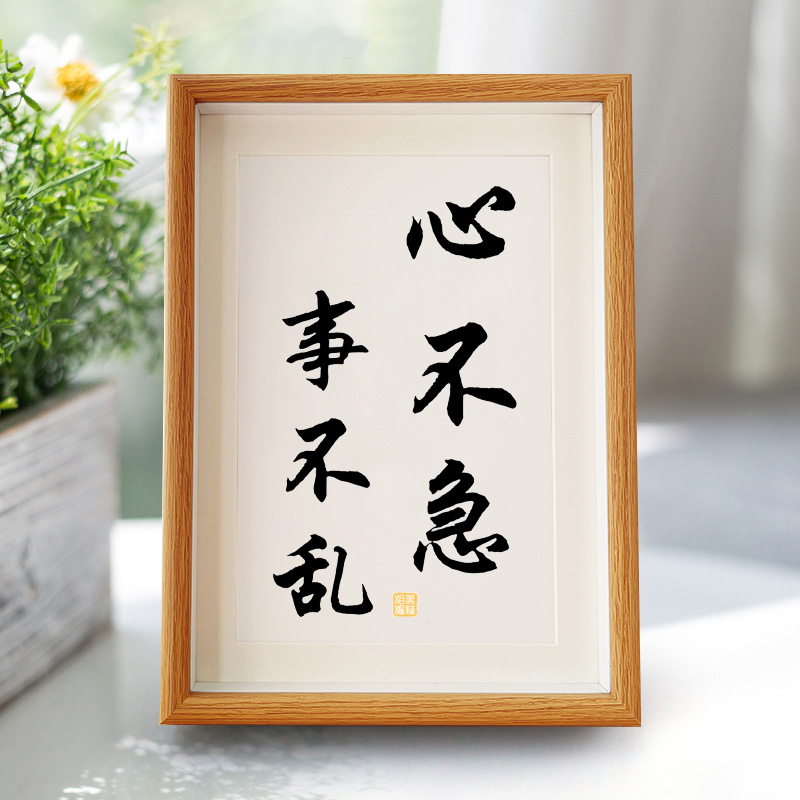 心不急
事不乱